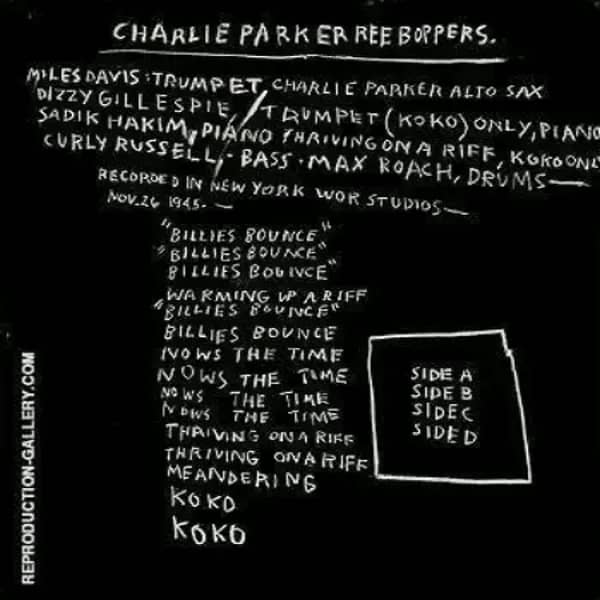 CHARLIE PARKER REE BOPPERS.
MILES DAVIS: TRUMPET, CHARLIE PARKER ALTO SAX
DIZZY GILLESPIE, TRUMPET (KOKO) ONLY, PIANO
SADIK HAKIM, PIANO THRIVING ON A RIFF, KOKO ONLY
CURLY RUSSELL, - BASS - MAX ROACH, DRUMS—
RECORDED IN NEW YORK WOR STUDIOS—
NOV. 26 1945. —
"BILLIES BOUNCE"
"BILLIES BOUNCE"
BILLIES BOUNCE"
WARMING UP A RIFF
"BILLIES BOUNCE"
BILLIES BOUNCE
NOWS THE TIME
NOWS THE TIME
NOWS THE TIME
NOWS THE TIME
THRIVING ON A RIFF
THRIVING ON A RIFF
MEANDERING
KOKO
KOKO
SIDE A
SIDE B
SIDE C
SIDE D
REPRODUCTION-GALLERY.COM